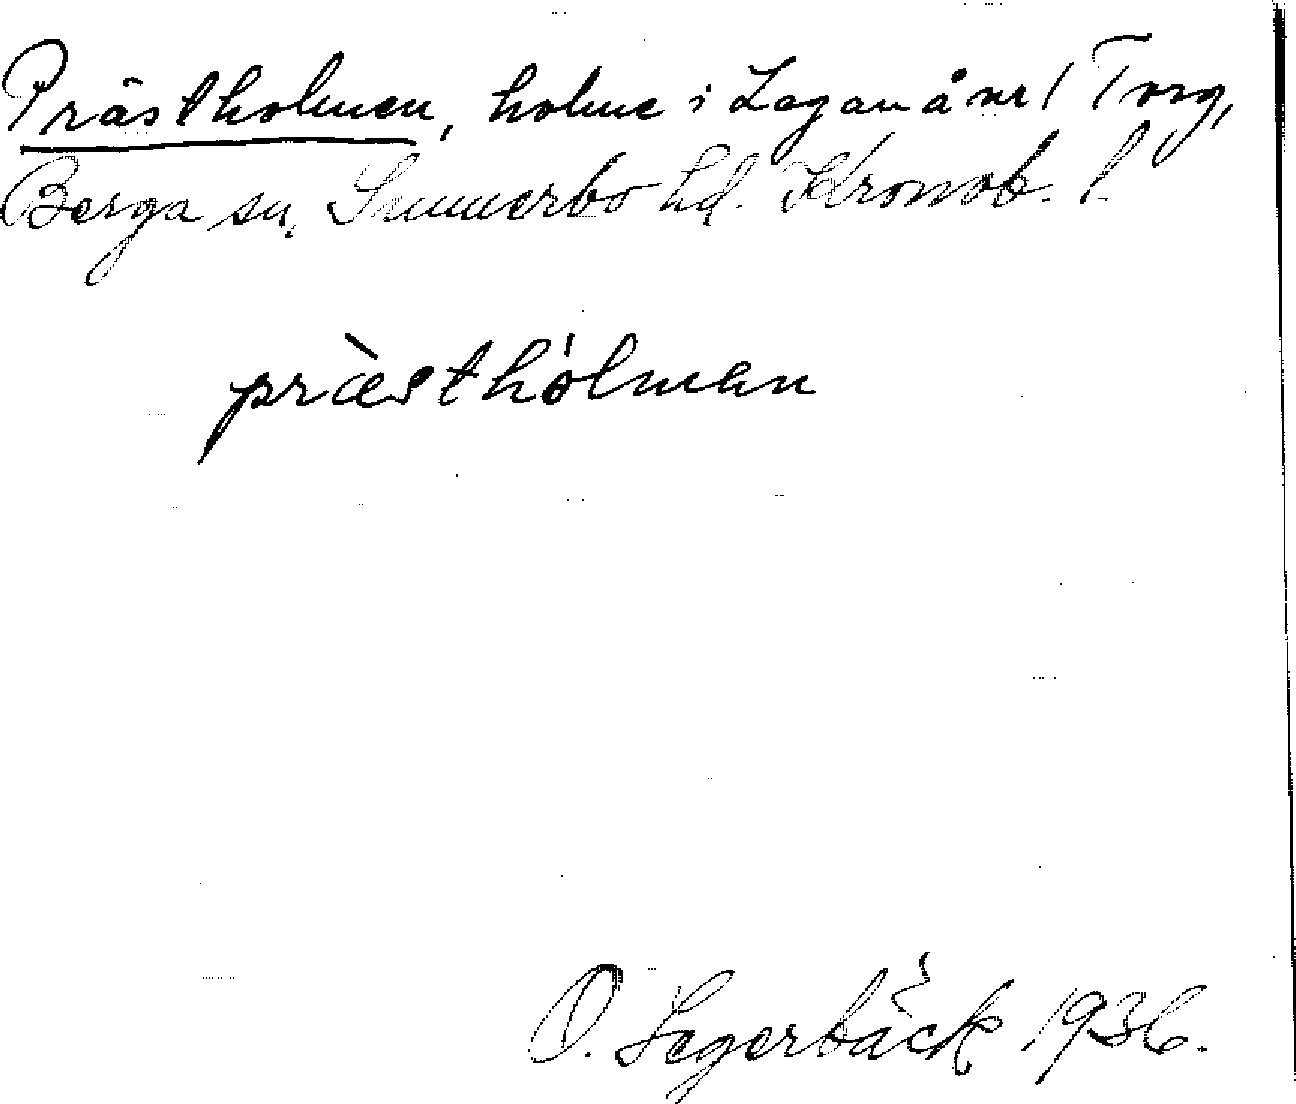 Prästholmen, holme i Lagan å nr 1 Torg,
Berga sn, Sunnerbo hd. Kronob. l.
præsthólmən
O. Segerbäck 1936.